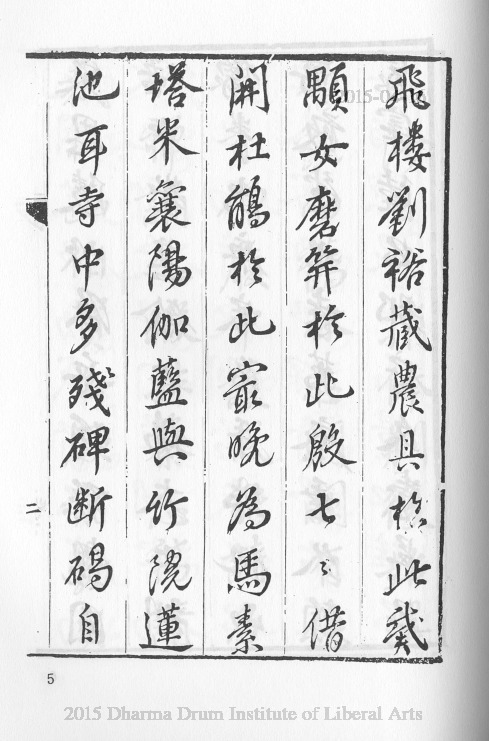 飛樓劉裕藏農具於此戴
顒女磨笄於此殷七〻借
開杜鵑於此㝡晚為馬素
塔米襄陽伽藍與竹院蓮
池耳寺中多殘碑断碣自
二
5
2015 Dharma Drum Institute of Liberal Arts